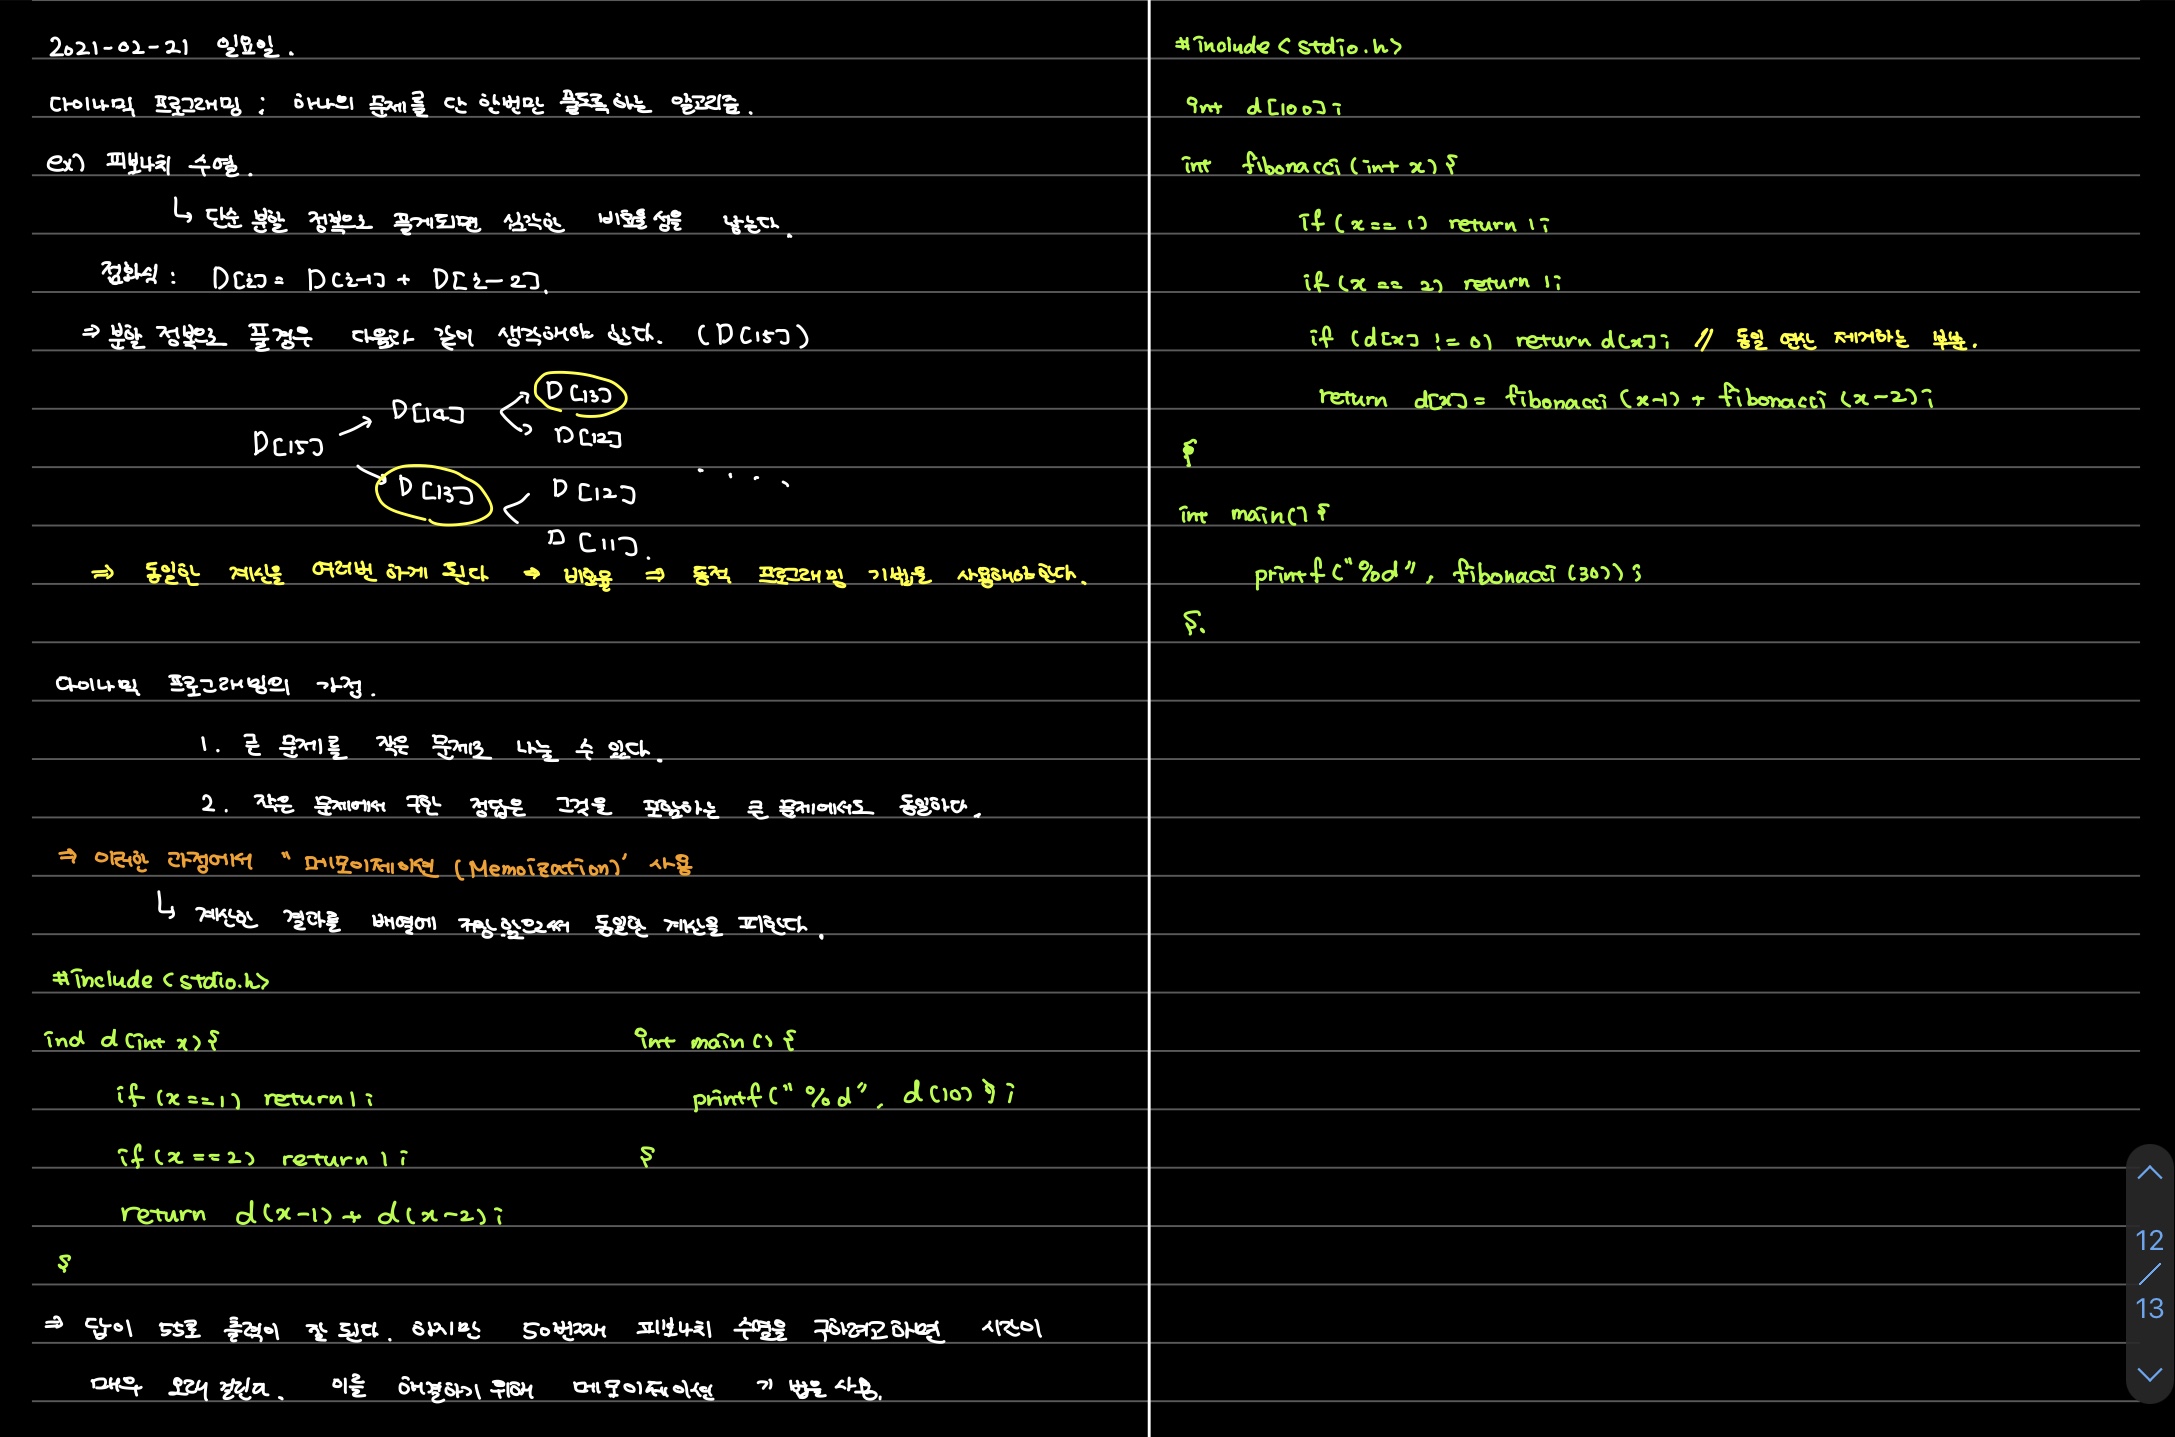 2021-02-21 일요일.
다이나믹 프로그래밍 : 하나의 문제를 단 한번만 풀도록 하는 알고리즘.
ex) 피보나치 수열.
↳ 단순 분할 정복으로 풀게되면 심각한 비효율성을 낳는다.
점화식 : D[i] = D[i-1] + D[i-2].
⇒ 분할 정복으로 풀경우 다음과 같이 생각해야 한다. (D[15])
D[13]
D[14]
D[12]
D[15]
D[13]
D[12] ....
D[11].
⇒ 동일한 계산을 여러번 하게 된다 → 비효율 ⇒ 동적 프로그래밍 기법을 사용해야한다.
다이나믹 프로그래밍의 가정.
1. 큰 문제를 작은 문제로 나눌 수 있다.
2. 작은 문제에서 구한 정답은 그것을 포함하는 큰 문제에서도 동일하다.
⇒ 이러한 과정에서 "메모이제이션 (Memoization)' 사용
↳ 계산한 결과를 배열에 저장함으로써 동일한 계산을 피한다.
#include <stdio.h>
ind d(int x){
if (x==1) return 1;
if (x==2) return 1;
return d(x-1) + d(x-2);
}
int main () {
printf("%d", d(10));
}
⇒ 답이 55로 출력이 잘 된다. 하지만 50번째 피보나치 수열을 구하려고하면 시간이
매우 오래 걸린다. 이를 해결하기 위해 메모이제이션 기법을 사용.
#include <stdio.h>
int d[100];
int fibonacci (int x) {
if (x == 1) return 1;
if (x == 2) return 1;
if (d[x] != 0) return d[x]; // 동일 연산 제거하는 부분.
return d[x] = fibonacci (x-1) + fibonacci (x-2);
}
int main() {
printf("%d", fibonacci (30));
}.
12
/
13